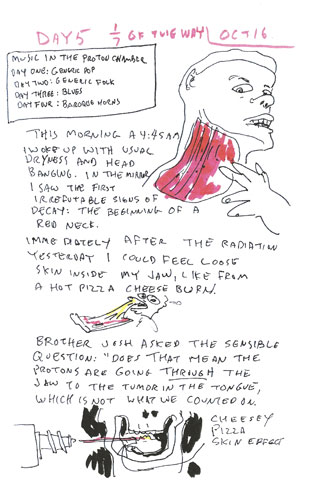 DAY 5 1/7 OF THE WAY OCT 16
MUSIC IN THE PROTON CHAMBER
DAY ONE: GENERIC POP
DAY TWO: GENERIC FOLK
DAY THREE: BLUES
DAY FOUR: BAROQUE HORNS
THIS MORNING A 4:45AM
I WOKE UP WITH USUAL
DRYNESS AND HEAD
BANGING. IN THE MIRROR
I SAW THE FIRST
IRREFUTABLE SIGNS OF
DECAY: THE BEGINNING OF A
RED NECK.
IMMEDIATELY AFTER THE RADIATION
YESTERDAY I COULD FEEL LOOSE
SKIN INSIDE MY JAW, LIKE FROM
A HOT PIZZA CHEESE BURN.
BROTHER JOSH ASKED THE SENSIBLE
QUESTION: "DOES THAT MEAN THE
PROTONS ARE GOING THROUGH THE
JAW TO THE TUMOR IN THE TONGUE,
WHICH IS NOT WHAT WE COUNTED ON.
CHEESEY
PIZZA
SKIN EFFECT